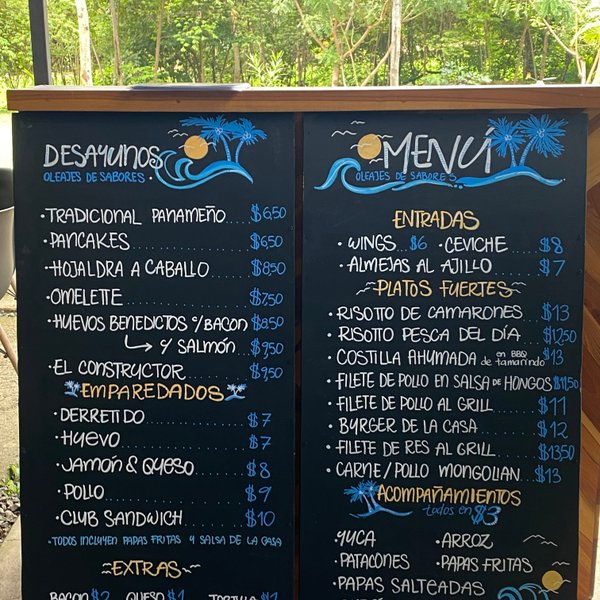 DESAYUNOS
OLEAJES DE SABORES
• TRADICIONAL PANAMEÑO.... $6,50
• PANCAKES.............. $6,50
• HOJALDRA A CABALLO..... $8,50
• OMELETTE.............. $7,50
• HUEVOS BENEDICTOS c/BACON $8,50
↳ c/ SALMÓN.. $9,50
• EL CONSTRUCTOR........ $9,50
EMPAREDADOS
• DERRETIDO............ $7
• HUEVO................ $7
• JAMÓN & QUESO....... $8
• POLLO................ $9
• CLUB SANDWICH....... $10
• TODOS INCLUYEN PAPAS FRITAS Y SALSA DE LA CASA
EXTRAS
BACON $2 QUESO $1 TORTILLA $1
MENÚ
OLEAJES DE SABORES
ENTRADAS
• WINGS... $6 • CEVICHE .... $8
• ALMEJAS AL AJILLO ..... $7
PLATOS FUERTES
• RISOTTO DE CAMARONES.. $13
• RISOTTO PESCA DEL DÍA... $12,50
• COSTILLA AHUMADA en BBQ de tamarindo $13
• FILETE DE POLLO EN SALSA DE HONGOS $11,50
• FILETE DE POLLO AL GRILL .... $11
• BURGER DE LA CASA ........ $12
• FILETE DE RES AL GRILL.... $13,50
• CARNE/POLLO MONGOLIAN.. $13
ACOMPAÑAMIENTOS
todos en $3
• YUCA • ARROZ
• PATACONES • PAPAS FRITAS
• PAPAS SALTEADAS